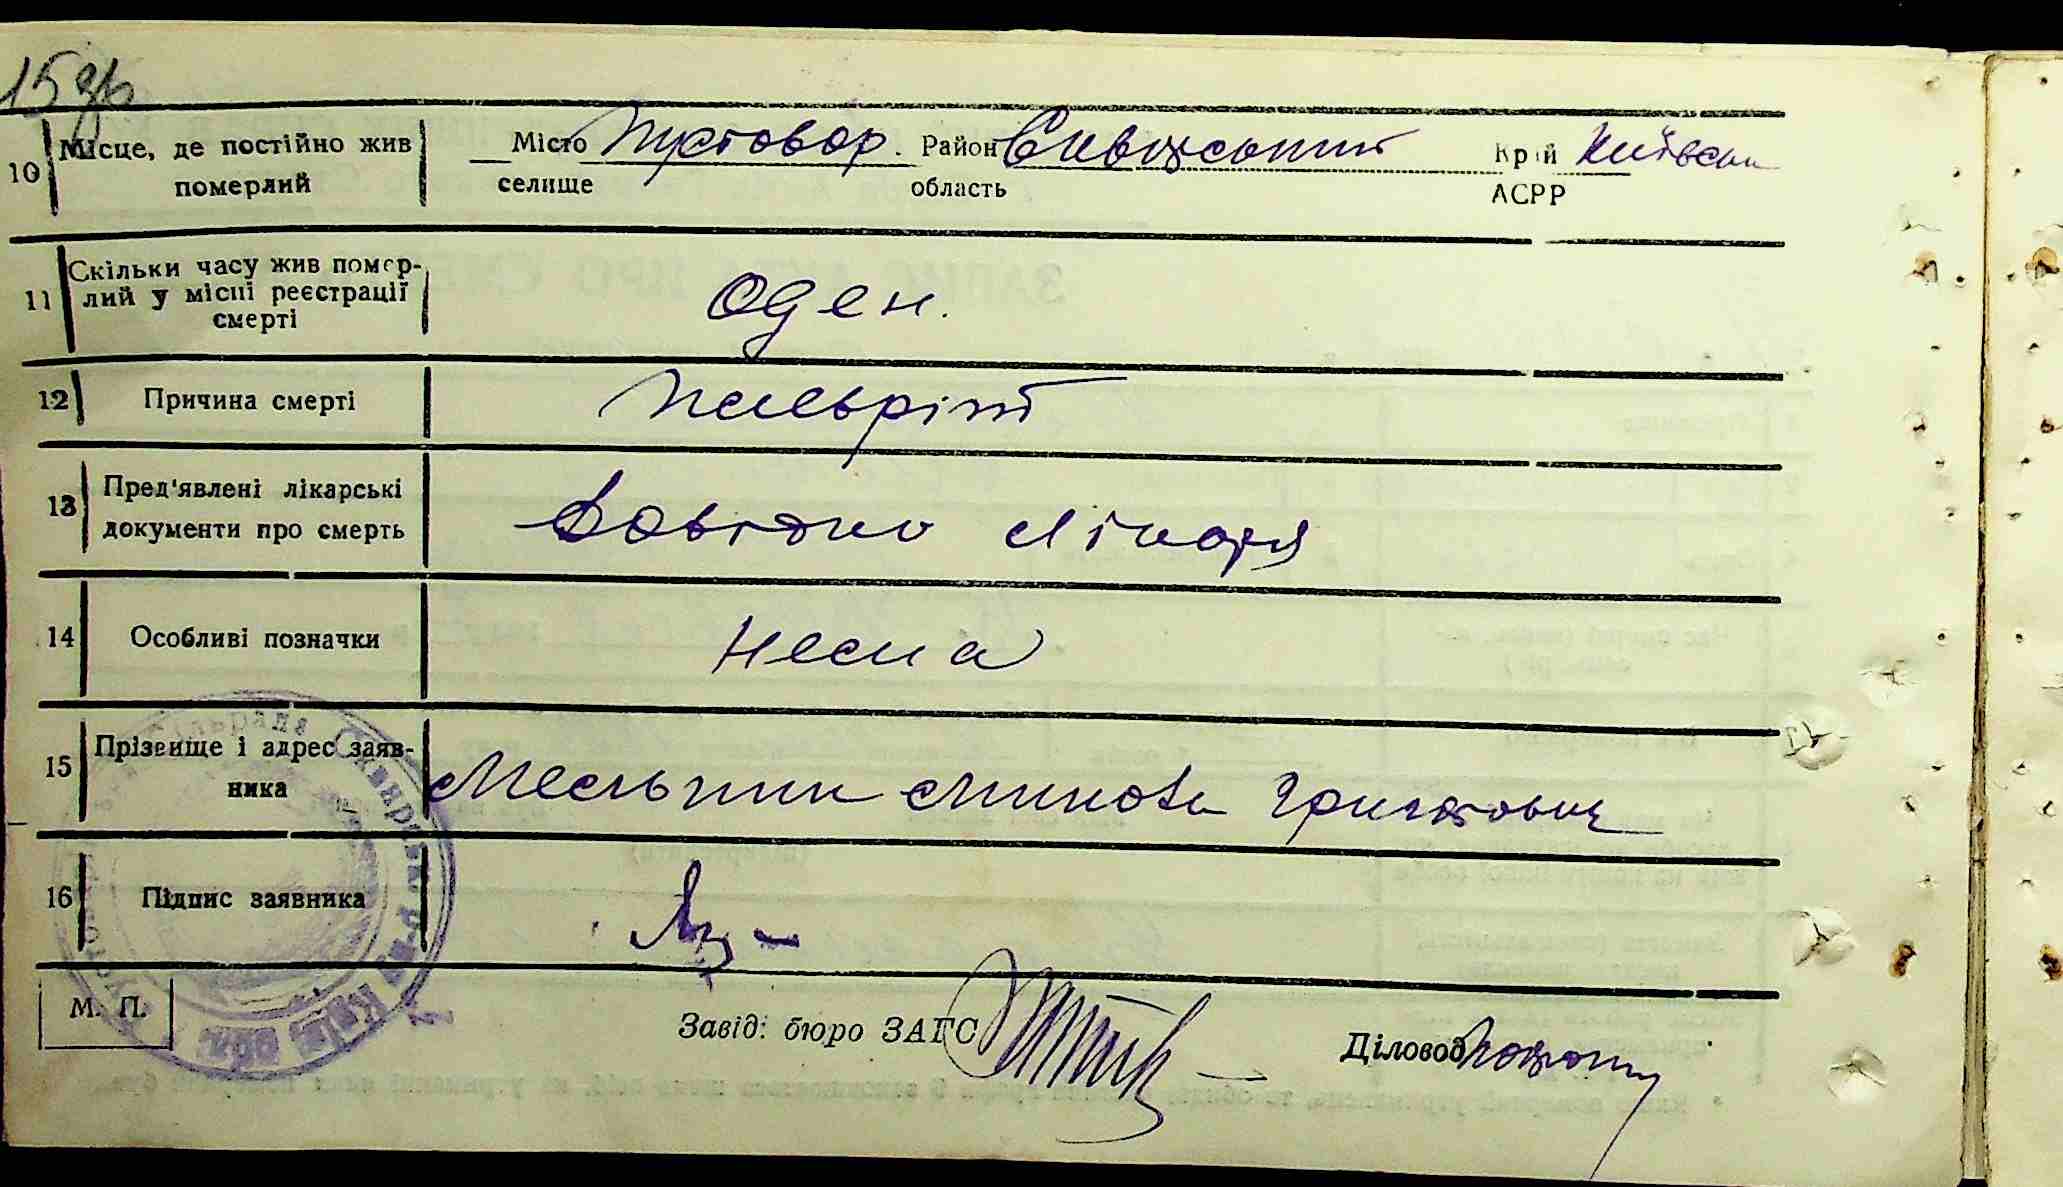 15 др
10 Місце, де постійно жив померлий
Місто Пустовар. Район Сквирський Край Київськ
селище область АСРР
11 Скільки часу жив померлий у місці реєстрації смерті
Оден.
12 Причина смерті
Плеврит
13 Пред'явлені лікарські документи про смерть
Довідка лікаря
14 Особливі позначки
Нема
15 Прізвище і адрес заявника
Мельник Микола Григорович
16 Підпис заявника
М. П.
Завід. бюро ЗАГС
Діловод